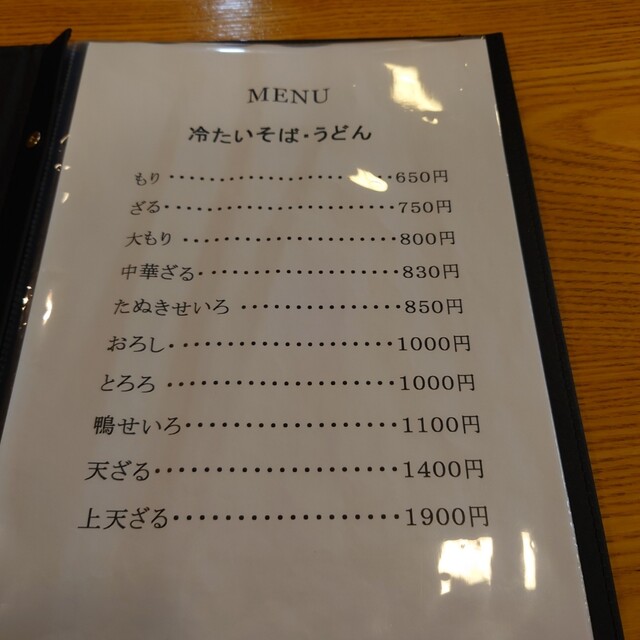 MENU
冷たいそば・うどん
もり‥‥‥‥‥‥‥‥‥650円
ざる‥‥‥‥‥‥‥‥‥750円
大もり‥‥‥‥‥‥‥‥800円
中華ざる‥‥‥‥‥‥‥830円
たぬきせいろ‥‥‥‥‥850円
おろし‥‥‥‥‥‥‥‥1000円
とろろ‥‥‥‥‥‥‥‥1000円
鴨せいろ‥‥‥‥‥‥‥1100円
天ざる‥‥‥‥‥‥‥‥1400円
上天ざる‥‥‥‥‥‥‥1900円